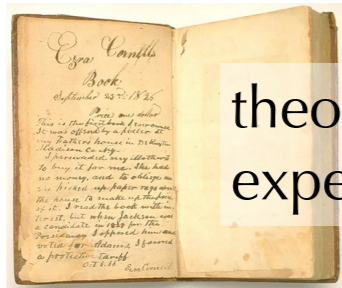 Ezra Cornells
Book
September 23rd 1826
Price one dollar
This is the first book I ever owned
It was offered by a pedler at
my Fathers house in DeRuyter
Madison Co N.Y.
I persuaded my Mother
to buy it for me. She had
no money, and to oblige me
she picked up paper rags about
the house to make up the price
of it. I read the book with in-
terest, but when Jackson was
a candidate in 1828 for the
Presidency I opposed him and
voted for Adams I favored
a protective tariff
theo
expe